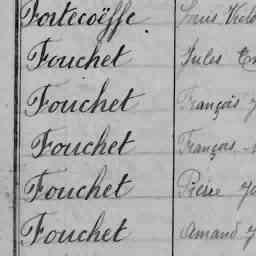 Fortecoëffe Louis
Fouchet Jules
Fouchet François
Fouchet François
Fouchet Pierre
Fouchet Amand